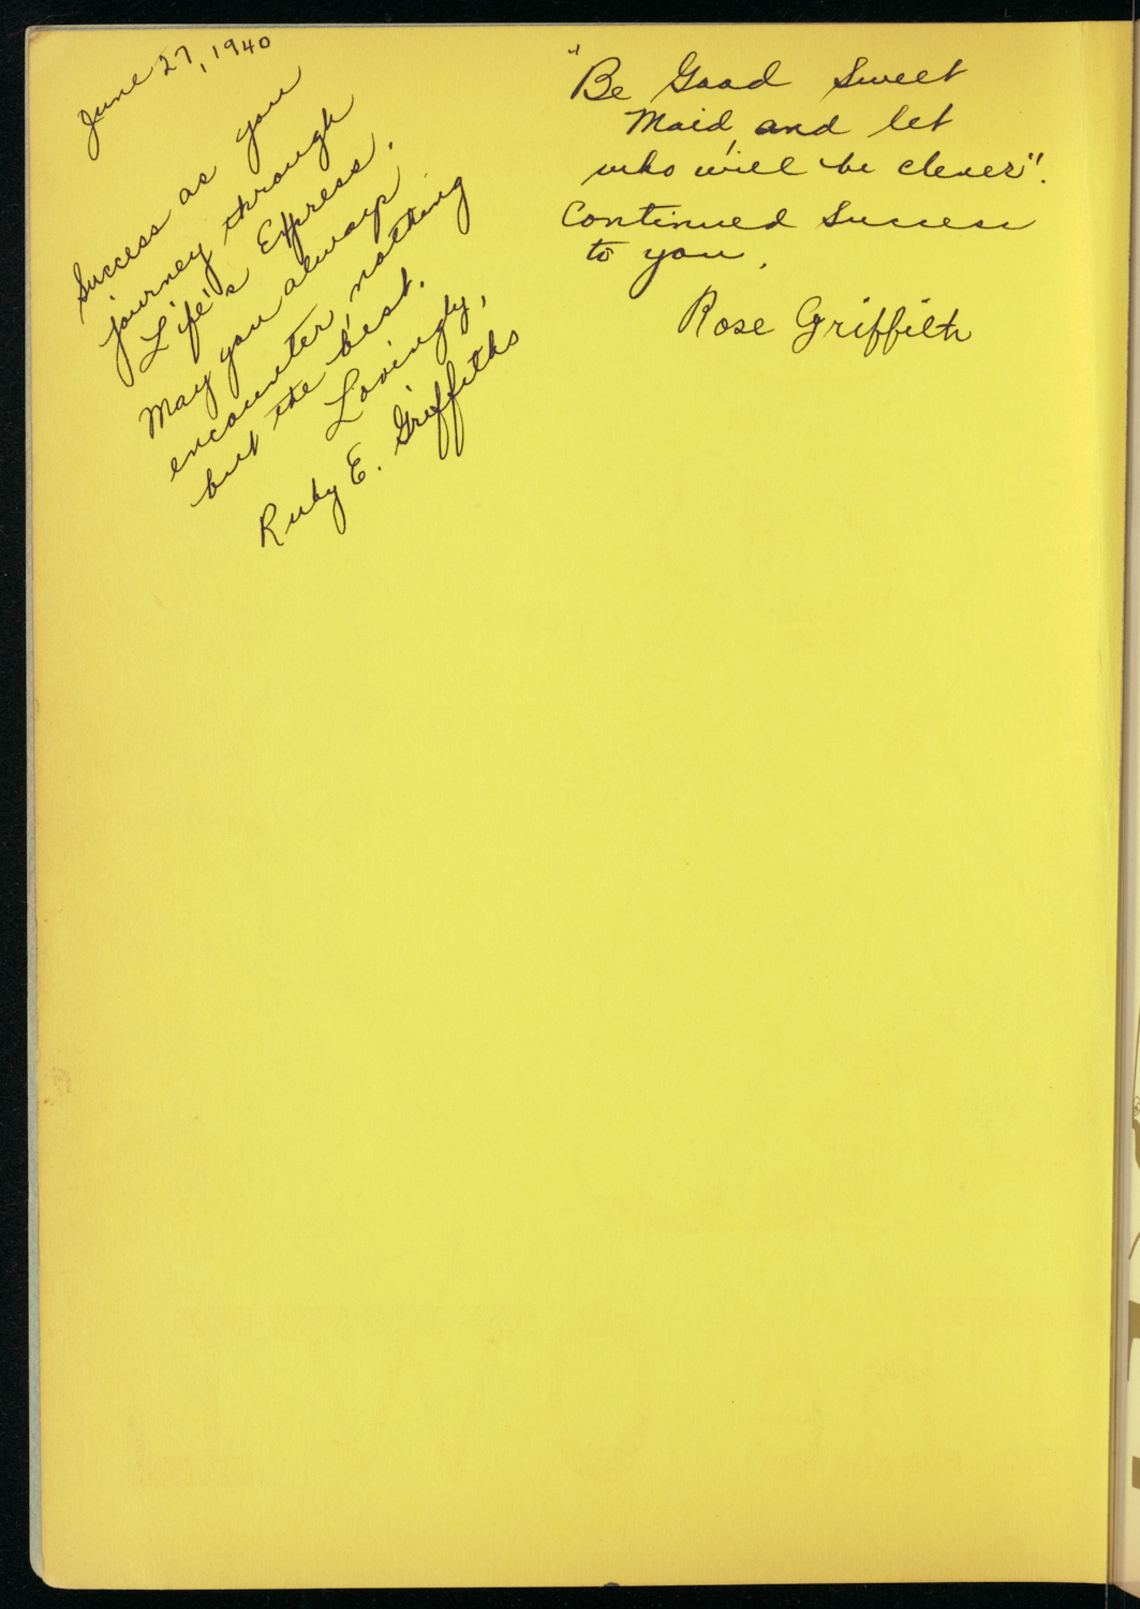 June 27, 1940
Success as you
journey through
Life's Express.
May you always
encounter nothing
but the best.
Lovingly,
Ruby E. Griffiths
"Be Good Sweet
Maid, and let
who will be clever".
Continued Success
to you.
Rose Griffith